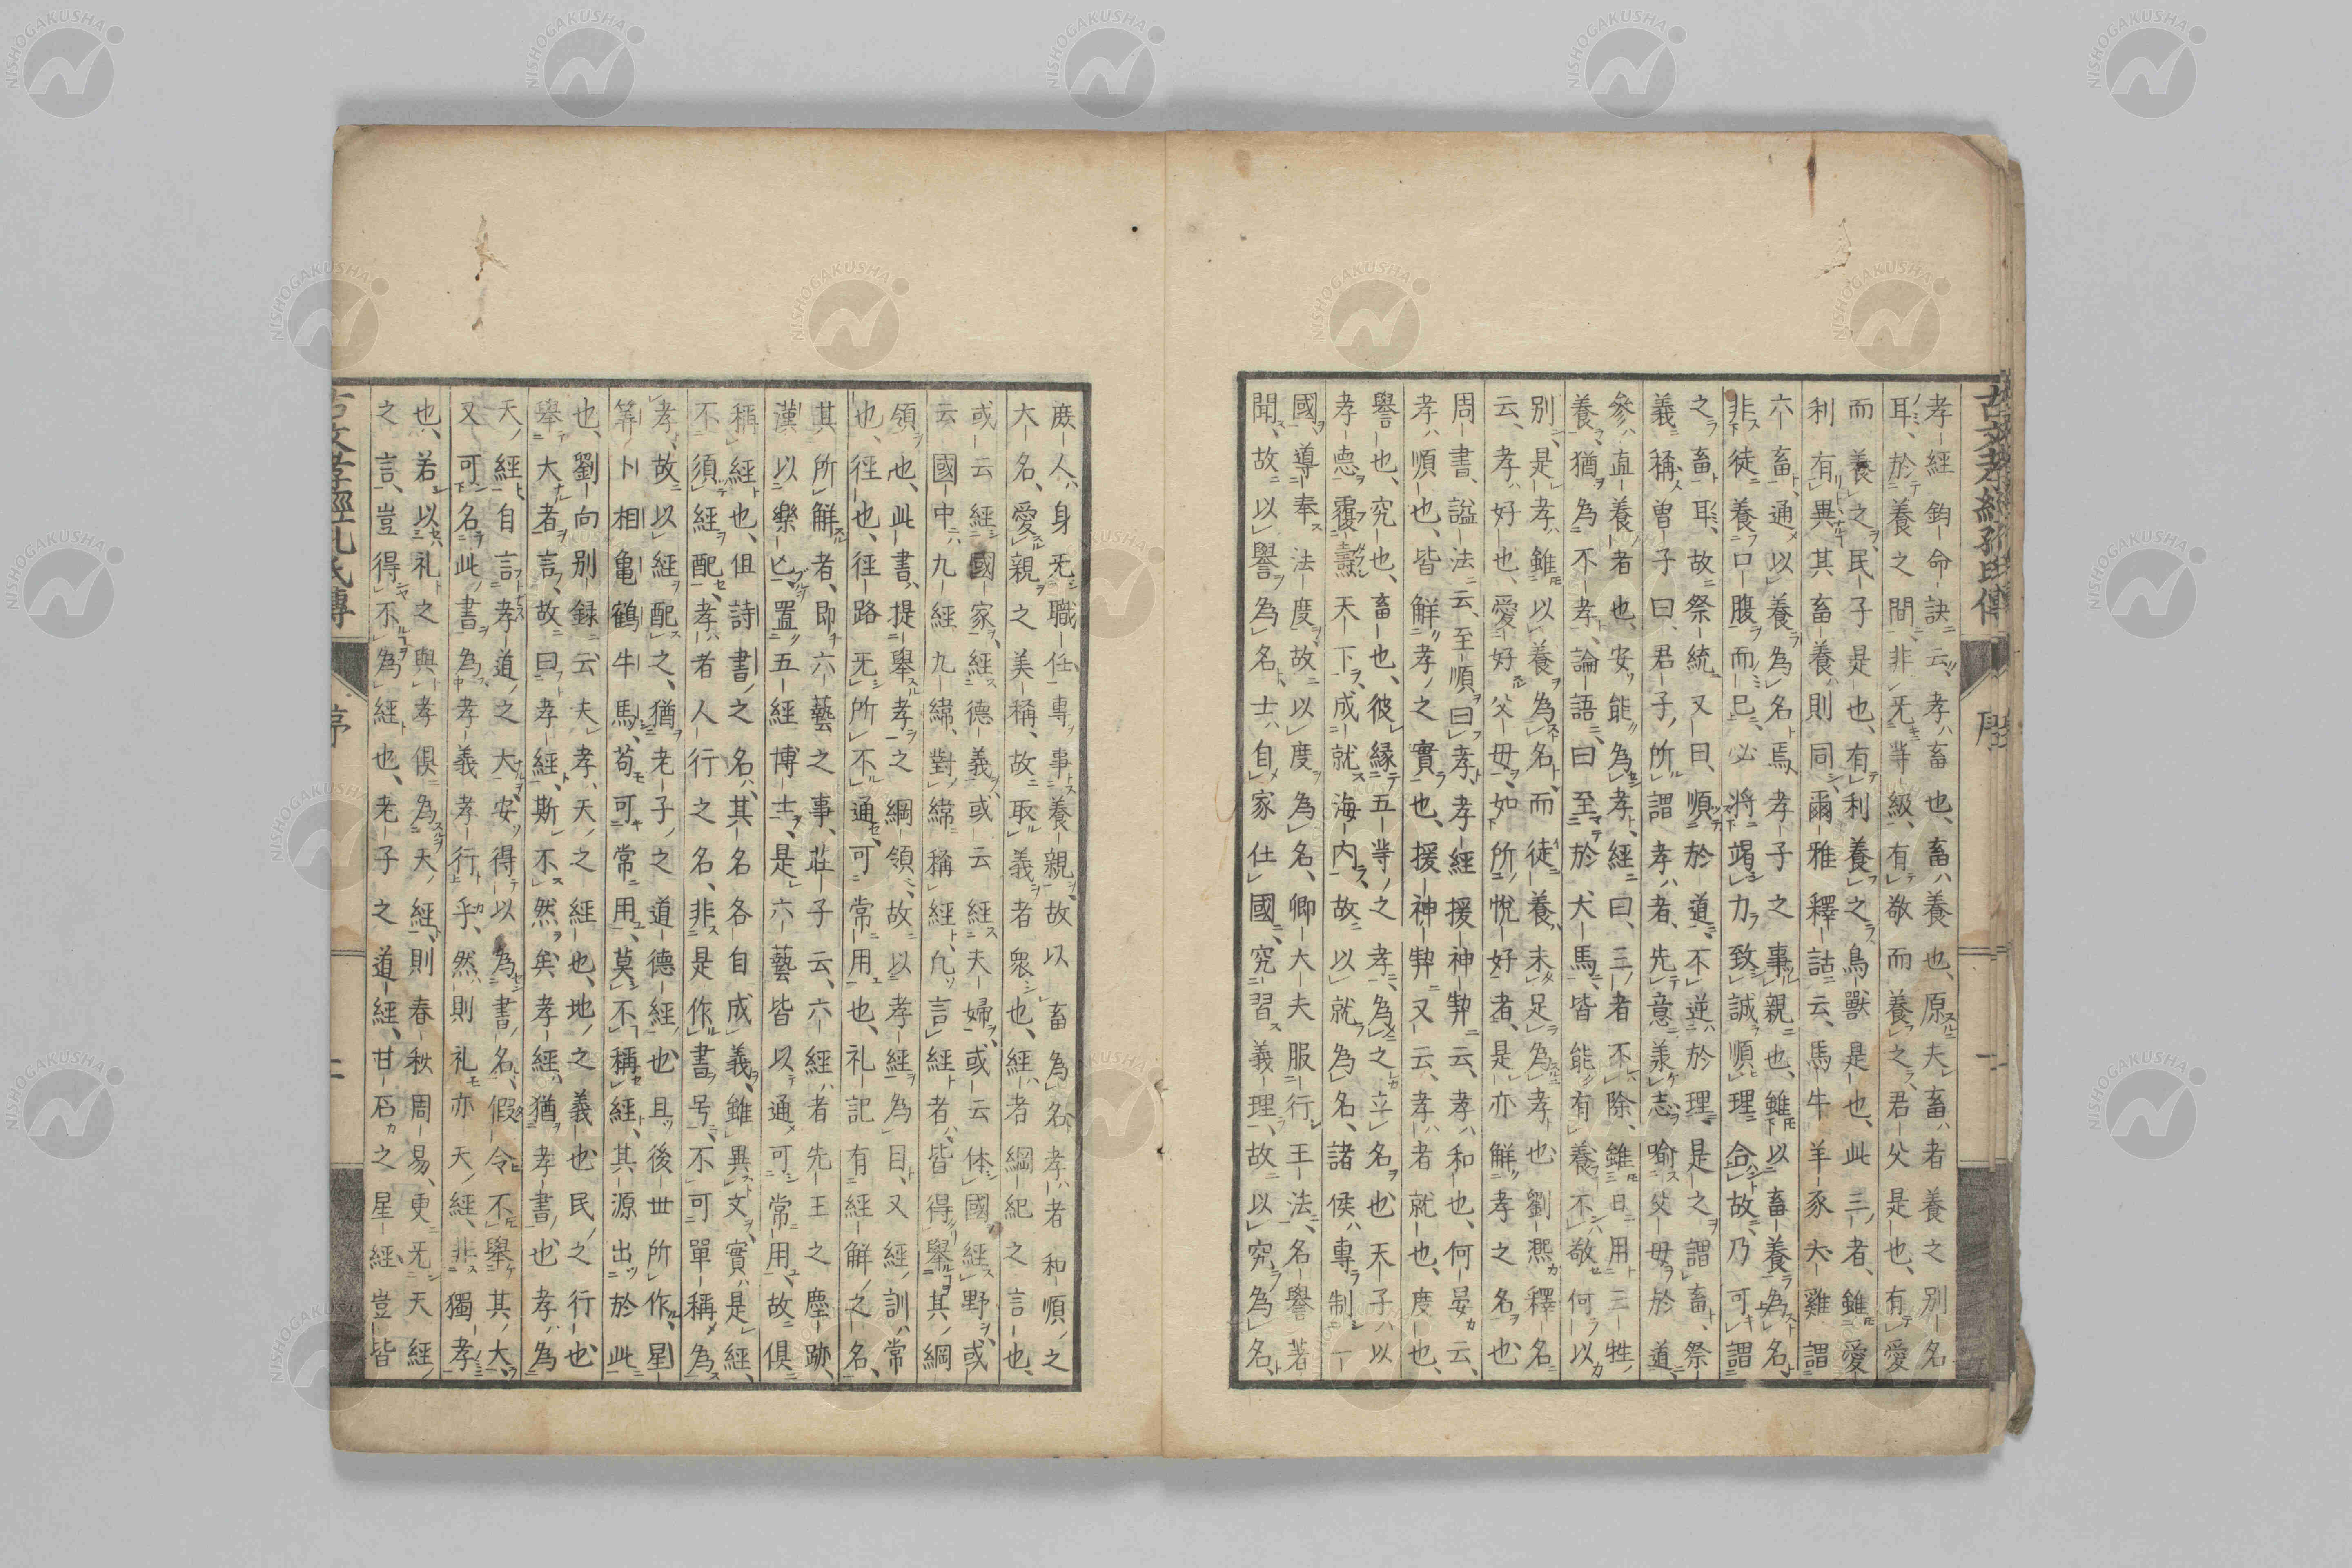 孝經鈞命訣云孝畜也畜養也原夫畜者養之別名
耳於養之間非无等級有敬而養之君父是也有愛
而養之民子是也有利養之鳥獸是也此三者雖愛
利有異其畜養則同爾雅釋詁云馬牛羊豕犬雞謂
六畜通以養為名焉孝子之事親也雖以畜養為名
非徒養口腹而已必將竭力致誠順理合故乃可謂
之畜耳故祭統又曰順於道不逆於理是之謂畜祭
義稱曽子曰君子所謂孝者先意羕志喻父毋於道
參直養者也安能為孝經曰三者不除雖日用三牲
養猶為不孝論語曰至於犬馬皆能有養不敬何以
別是孝雖以養為名而徒養未足為孝也劉熈釋名
云孝好也愛好父毋如所悅好者是亦解孝之名也
周書謚法云至順曰孝孝經援神契云孝和也何晏云
孝順也皆解孝之實也援神契又云孝者就也度也
譽也究也畜也彼緣五等之孝為之立名也天子以
孝德覆燾天下成就海內故以就為名諸侯專制一
國導奉法度故以度為名卿大夫服行王法名譽著
聞故以譽為名士自家仕國究習義理故以究為名
庶人身无職任專事養親故以畜為名孝者和順之
大名愛親之美稱故取義者衆也經者綱紀之言也
或云經國家經德義或云經夫婦或云体國經野或
云國中九經九緯對緯稱經凢言經者皆得舉其綱
領也此書提舉孝之綱領故以孝經為目又經訓常
也徃也徃路无所不通可常用也礼記有經解之名
其所解者即六藝之事莊子云六經者先王之塵跡
漢以樂亡置五經博士是六藝皆以通可常用故俱
稱經也但詩書之名其名各自成義雖異文實是經
不須經配孝者人行之名非是作書号不可單稱為
孝故以經配之猶老子之道德經也且後世所作星
筭卜相亀鶴牛馬苟可常用莫不稱經其源出於此
也劉向別録云夫孝天之經也地之義也民之行也
舉大者言故曰孝經斯不然矣孝經猶孝書也孝為
天經自言孝道之大安得以為書名假令不舉其大
又可名此書為孝義孝行乎然則礼亦天經非獨孝
也若以礼之與孝俱為天經則春秋周易更无天經
之言豈得不為經也老子之道經甘石之星經豈皆
古文孝經孔氏傳
序
二